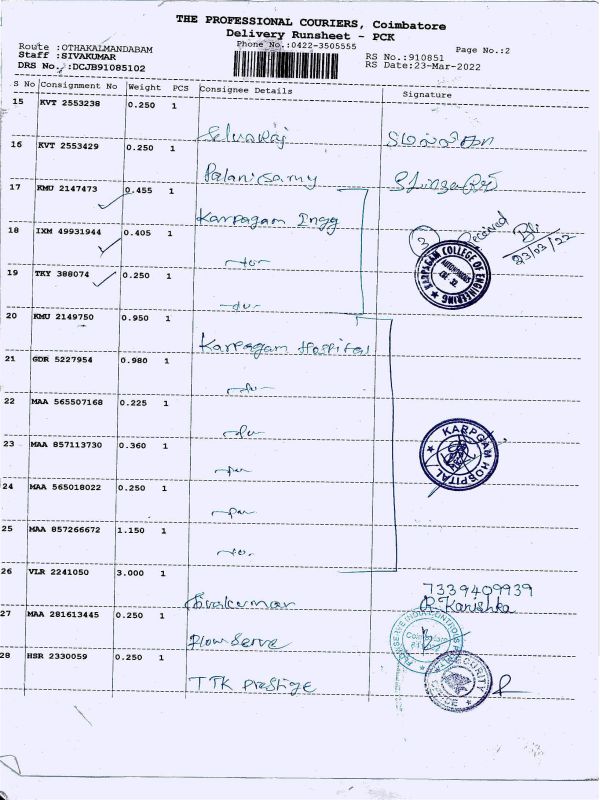 THE PROFESSIONAL COURIERS, Coimbatore
Delivery Runsheet - PCK
Phone No.:0422-3505555
Page No.:2
Route :OTHAKALMANDABAM
Staff :SIVAKUMAR
DRS No.:DCJB91085102
RS No.:910851
RS Date:23-Mar-2022
S No Consignment No Weight PCS Consignee Details Signature
15 KVT 2553238 0.250 1
Selvaraj
16 KVT 2553429 0.250 1
Palanisamy
17 KMU 2147473 0.455 1
Karpagam Engg
18 IXM 49931944 0.405 1
3 Received
23/03/22
-do-
KARPAGAM COLLEGE OF ENGINEERING
AUTONOMOUS
CBE. 32.
19 TKY 388074 0.250 1
-do-
20 KMU 2149750 0.950 1
Karpagam Hospital
21 GDR 5227954 0.980 1
-do-
22 MAA 565507168 0.225 1
-do-
KARPGAM HOSPITAL
23 MAA 857113730 0.360 1
-do-
24 MAA 565018022 0.250 1
-do-
25 MAA 857266672 1.150 1
-do-
26 VLR 2241050 3.000 1
7339409939
Sivakumar R. Kanishka
27 MAA 281613445 0.250 1
FlowServe
28 HSR 2330059 0.250 1
TTK Prestige